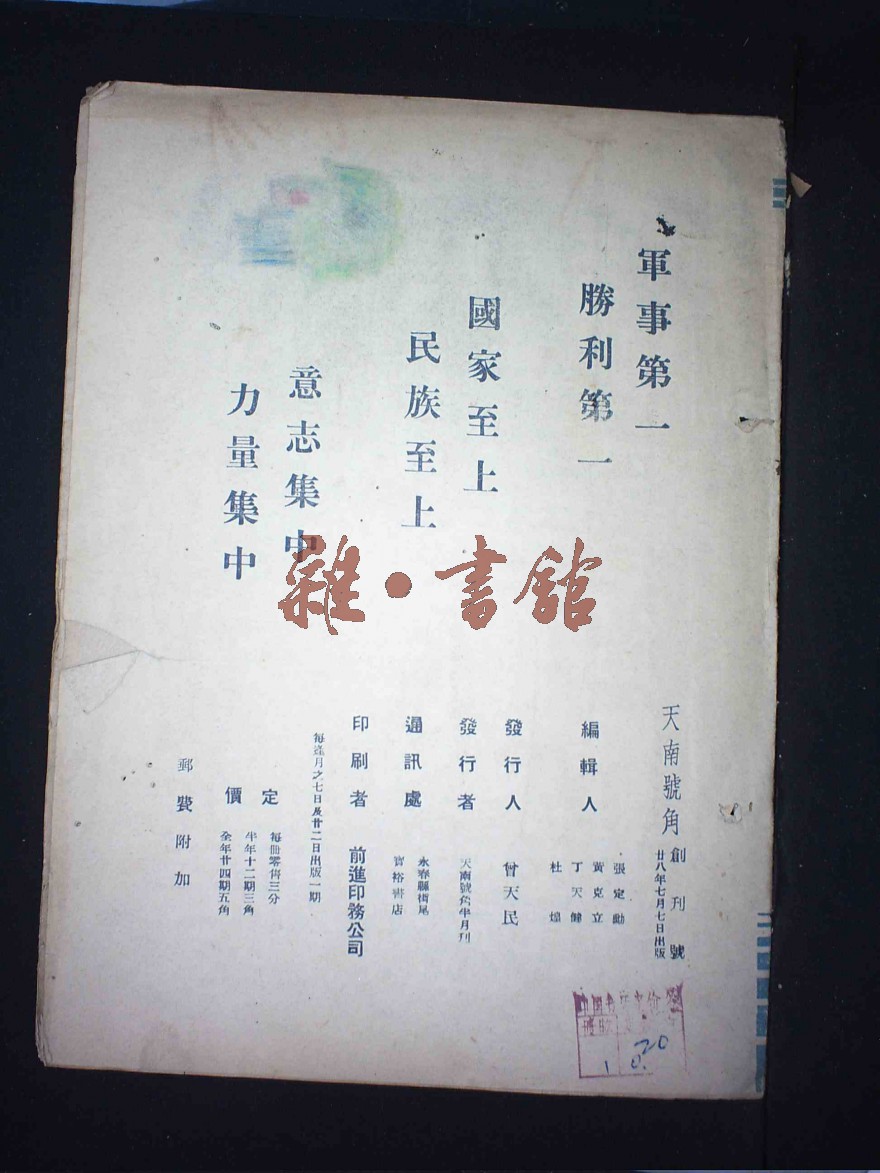 軍事第一
勝利第一
國家至上
民族至上
意志集中
力量集中
雜·書館
天南號角創刊號
廿八年七月七日出版
編輯人
張定勳
黃克立
丁天健
杜煌
發行人 曾天民
發行者 天南號角半月刊
通訊處
永春縣街尾
寶裕書店
印刷者 前進印務公司
每逢月之七日及廿二日出版一期
定價
每冊零售三分
半年十二期三角
全年廿四期五角
郵費附加
1 0.20